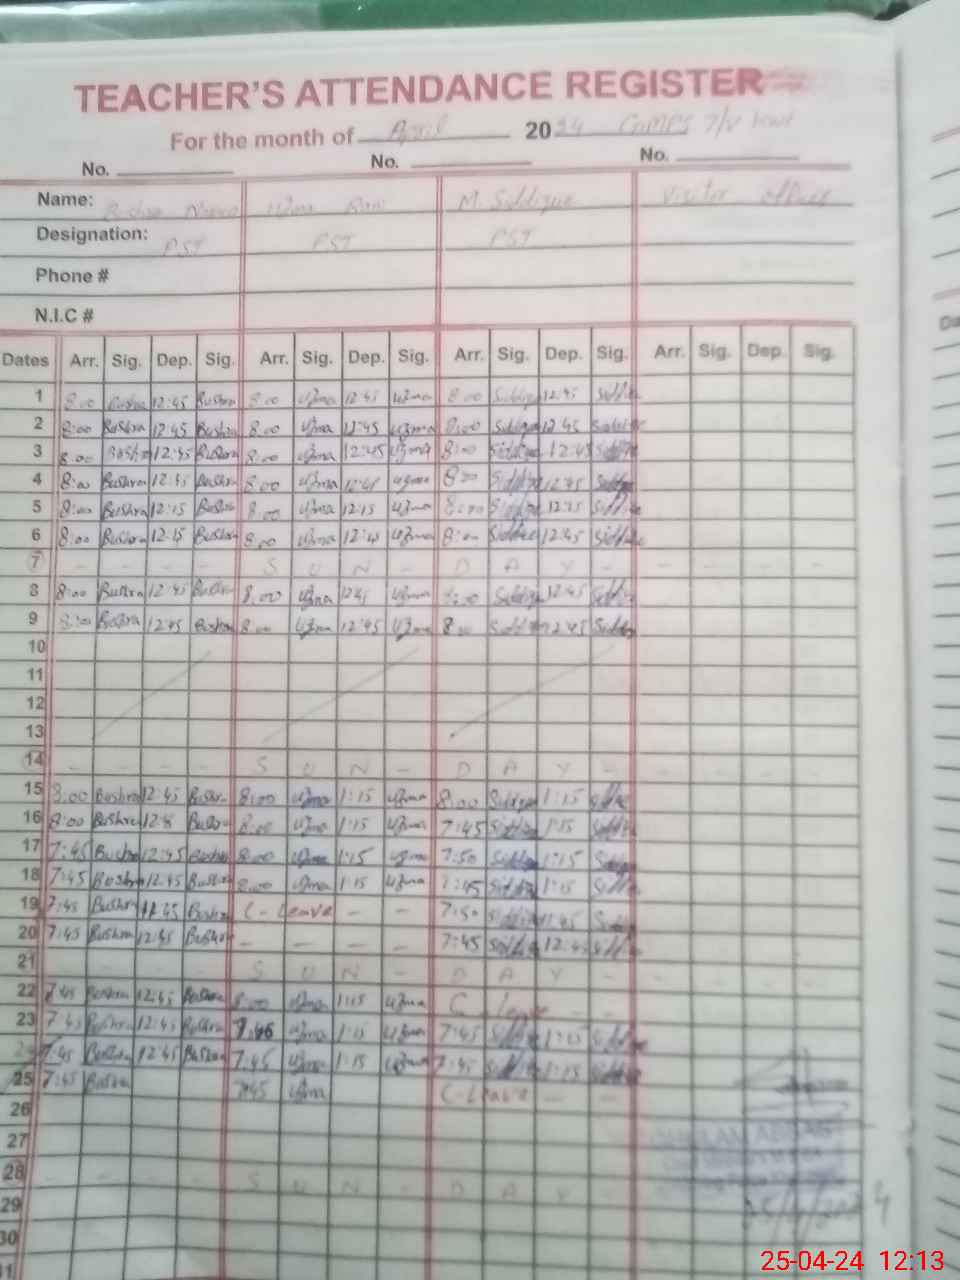 TEACHER'S ATTENDANCE REGISTER
For the month of April 2024 GMPS
No. No. No.
Name: Bushra Uzma Rani M. Siddique Visitor
Designation: PST PST PST
Phone #
N.I.C #
Dates Arr. Sig. Dep. Sig. Arr. Sig. Dep. Sig. Arr. Sig. Dep. Sig. Arr. Sig. Dep. Sig.
1 8:00 Bushra 12:45 Bushra 8:00 Uzma 12:45 Uzma 8:00 Siddique 12:45 Siddique
2 8:00 Bushra 12:45 Bushra 8:00 Uzma 12:45 Uzma 8:00 Siddique 12:45 Siddique
3 8:00 Bushra 12:45 Bushra 8:00 Uzma 12:45 Uzma 8:00 Siddique 12:45 Siddique
4 8:00 Bushra Bushra 8:00 Uzma 12:45 Uzma 8:00 Siddique 12:45 Siddique
5 8:00 Bushra 12:15 Bushra 8:00 Uzma 12:15 Uzma 8:00 Siddique 12:15 Siddique
6 8:00 Bushra 12:15 Bushra 8:00 Uzma 12:45 Uzma 8:00 Siddique 12:45 Siddique
7 - - - - S U N - D A Y -
8 8:00 Bushra 12:45 Bushra 8:00 Uzma 12:45 Uzma 8:00 Siddique 12:45 Siddique
9 8:00 Bushra 12:45 Bushra 8:00 Uzma 12:45 Uzma 8:00 Siddique 12:45 Siddique
10
11
12
13
14 - - - - S U N - D A Y - - - - -
15 8:00 Bushra 12:45 Bushra 8:00 Uzma 1:15 Uzma 8:00 Siddique 1:15 Siddique
16 8:00 Bushra Bushra 8:00 Uzma 1:15 Uzma 7:45 Siddique 1:15 Siddique
17 7:45 Bushra 12:45 Bushra 8:00 Uzma 1:15 Uzma 7:50 Siddique 1:15 Siddique
18 7:45 Bushra 12:45 Bushra 8:00 Uzma 1:15 Uzma 7:45 Siddique 1:15 Siddique
19 7:45 Bushra 11:45 Bushra C-Leave - - 7:50 Siddique 11:45 Siddique
20 7:45 Bushra 12:45 Bushra - - - - 7:45 Siddique 12:45 Siddique
21 - - - - S U N - D A Y - - - - -
22 7:45 Bushra 12:45 Bushra 8:00 Uzma 1:15 Uzma C Leave - -
23 7:45 Bushra 12:45 Bushra 7:45 Uzma 1:15 Uzma 7:45 Siddique 1:15 Siddique
24 7:45 Bushra 12:45 Bushra 7:45 Uzma 1:15 Uzma 7:45 Siddique 1:15 Siddique
25 7:45 Bushra 7:45 Uzma C-Leave - -
26
27
28 - - - - S U N - D A Y - -
29
30
31
25/4/2024
25-04-24 12:13